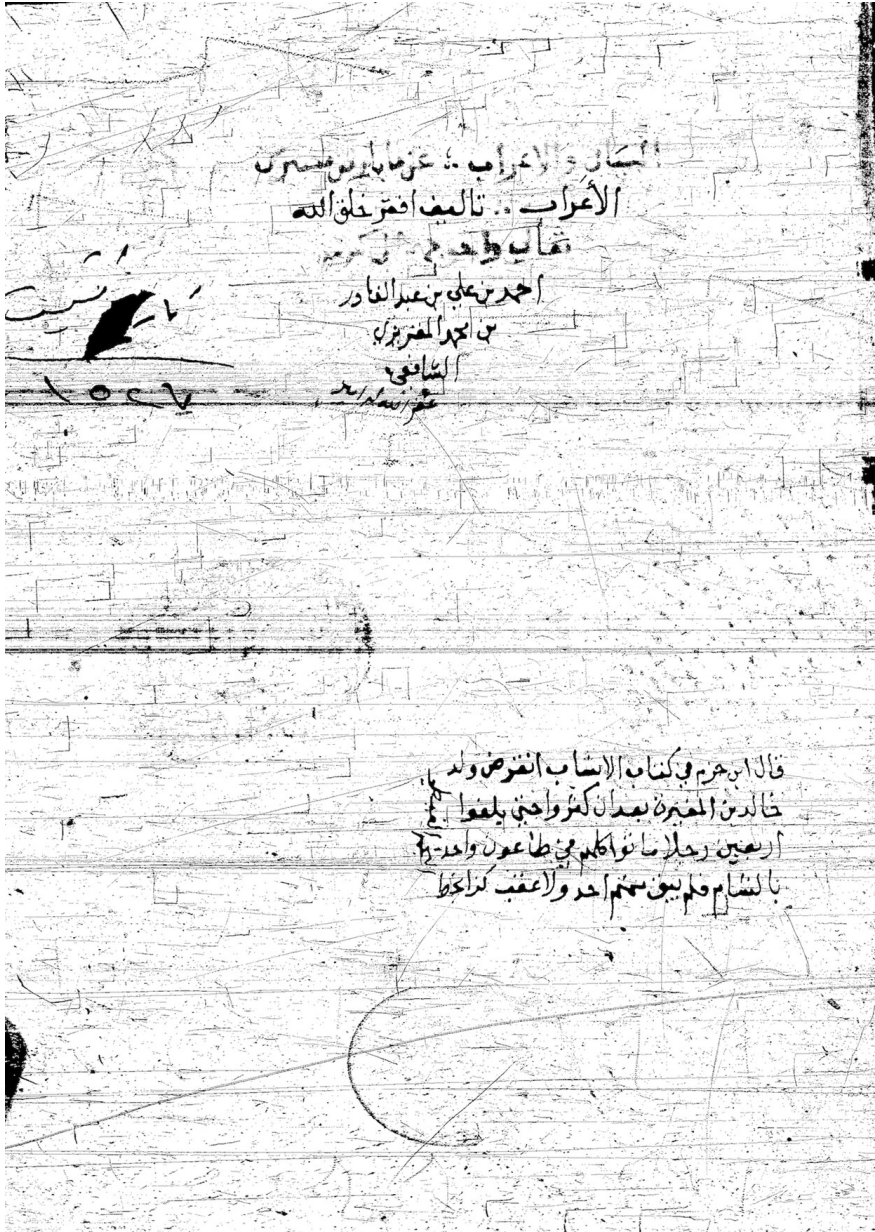 البيان والاعراب .؛ عن ما بارض مصر من
الأعراب .. تاليف افقر خلق الله
تعالى واحوجهم الى كرمه
احمد بن علي بن عبد القادر
بن محمد المقريزي
الشافعي
غفر الله له
تاريخ
١٥٢٧
قال ابن حزم في كتاب الانساب انقرض ولد
خالد بن المغيرة بعد ان كثروا حتى بلغوا
اربعين رجلا ماتوا كلهم في طاعون واحد
بالشام فلم يبق منهم احد ولا عقب